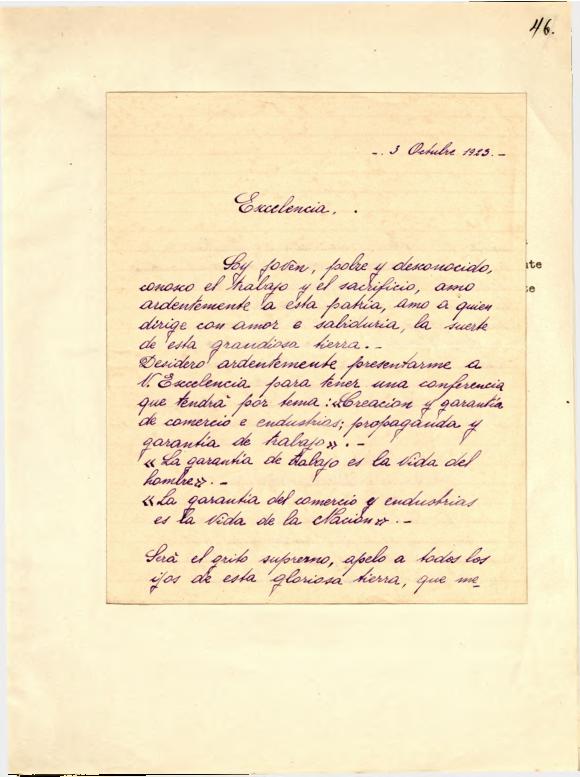 46.
-. 3 Octubre 1923.-
Excelencia. .
Soy joven, pobre y desconocido,
conosco el trabajo y el sacrificio, amo
ardentemente a esta patria, amo a quien
dirige con amor e sabiduria, la suerte
de esta grandiosa tierra.-
Desidero ardentemente presentarme a
V. Excelencia para tener una conferencia
que tendrà por tema: «Creacion y garantia
de comercio e endustrias; propaganda y
garantia de trabajo».-
«La garantia de trabajo es la vida del
hombre».-
«La garantia del comercio y endustrias
es la vida de la Nación».-
Serà el grito supremo, apelo a todos los
ijos de esta gloriosa tierra, que me-
te